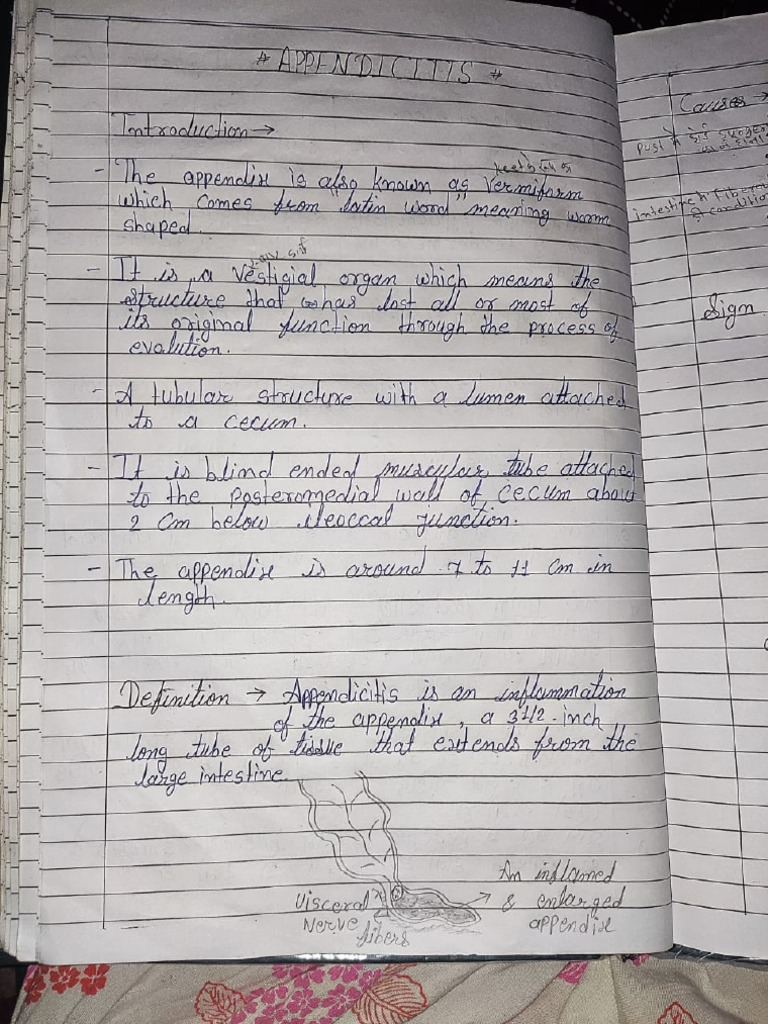 * APPENDICITIS *
Introduction →
- The appendix is also known as Vermiform
which comes from "latin word" meaning worm
shaped.
- It is a Vestigial organ which means the
structure that has lost all or most of
its original function through the process of
evalution.
- A tubular structure with a lumen attached
to a cecum.
- It is blind ended muscular tube attached
to the posteromedial wall of cecum about
2 cm below ileoccal junction.
- The appendix is around 7 to 11 cm in
length.
Definition → Appendicitis is an inflammation
of the appendix, a 31/2-inch
long tube of tissue that extends from the
large intestine
An inflamed
& enlarged
appendix
Visceral
Nerve
fibers
Causes →
Sign